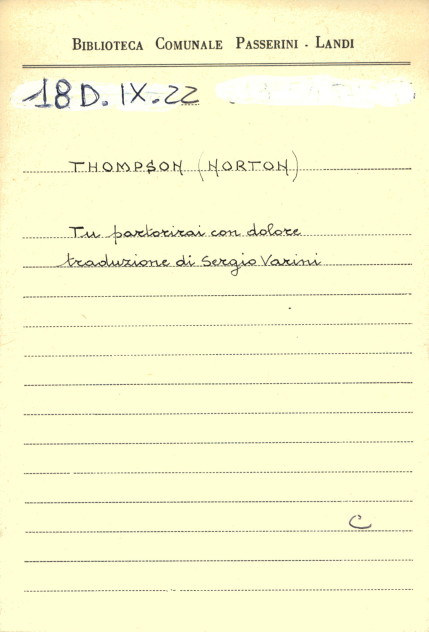 BIBLIOTECA COMUNALE PASSERINI - LANDI
18 D. IX. 22
THOMPSON (NORTON)
Tu partorirai con dolore
traduzione di Sergio Varini
C